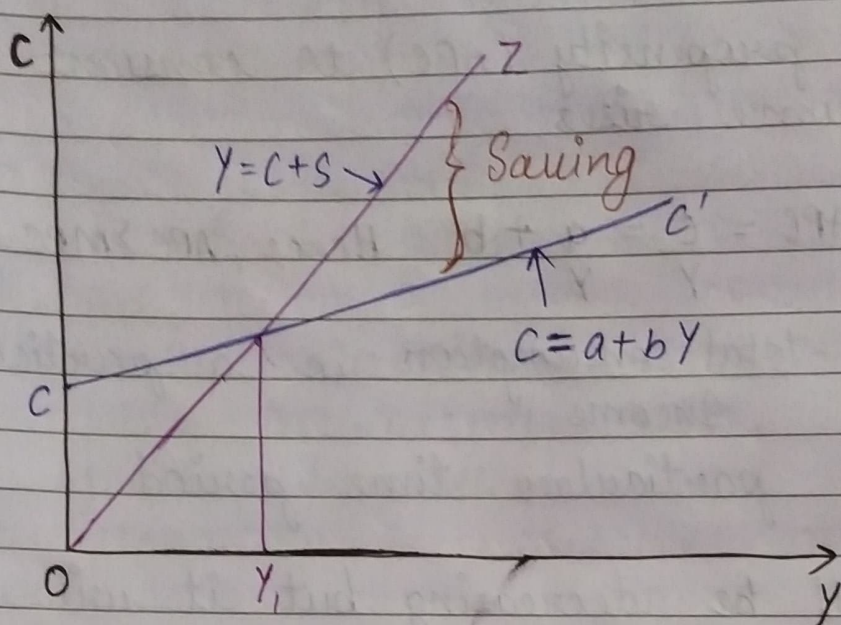 C
Z
Y=C+S
Saving
C'
C=a+bY
C
O
Y₁
Y